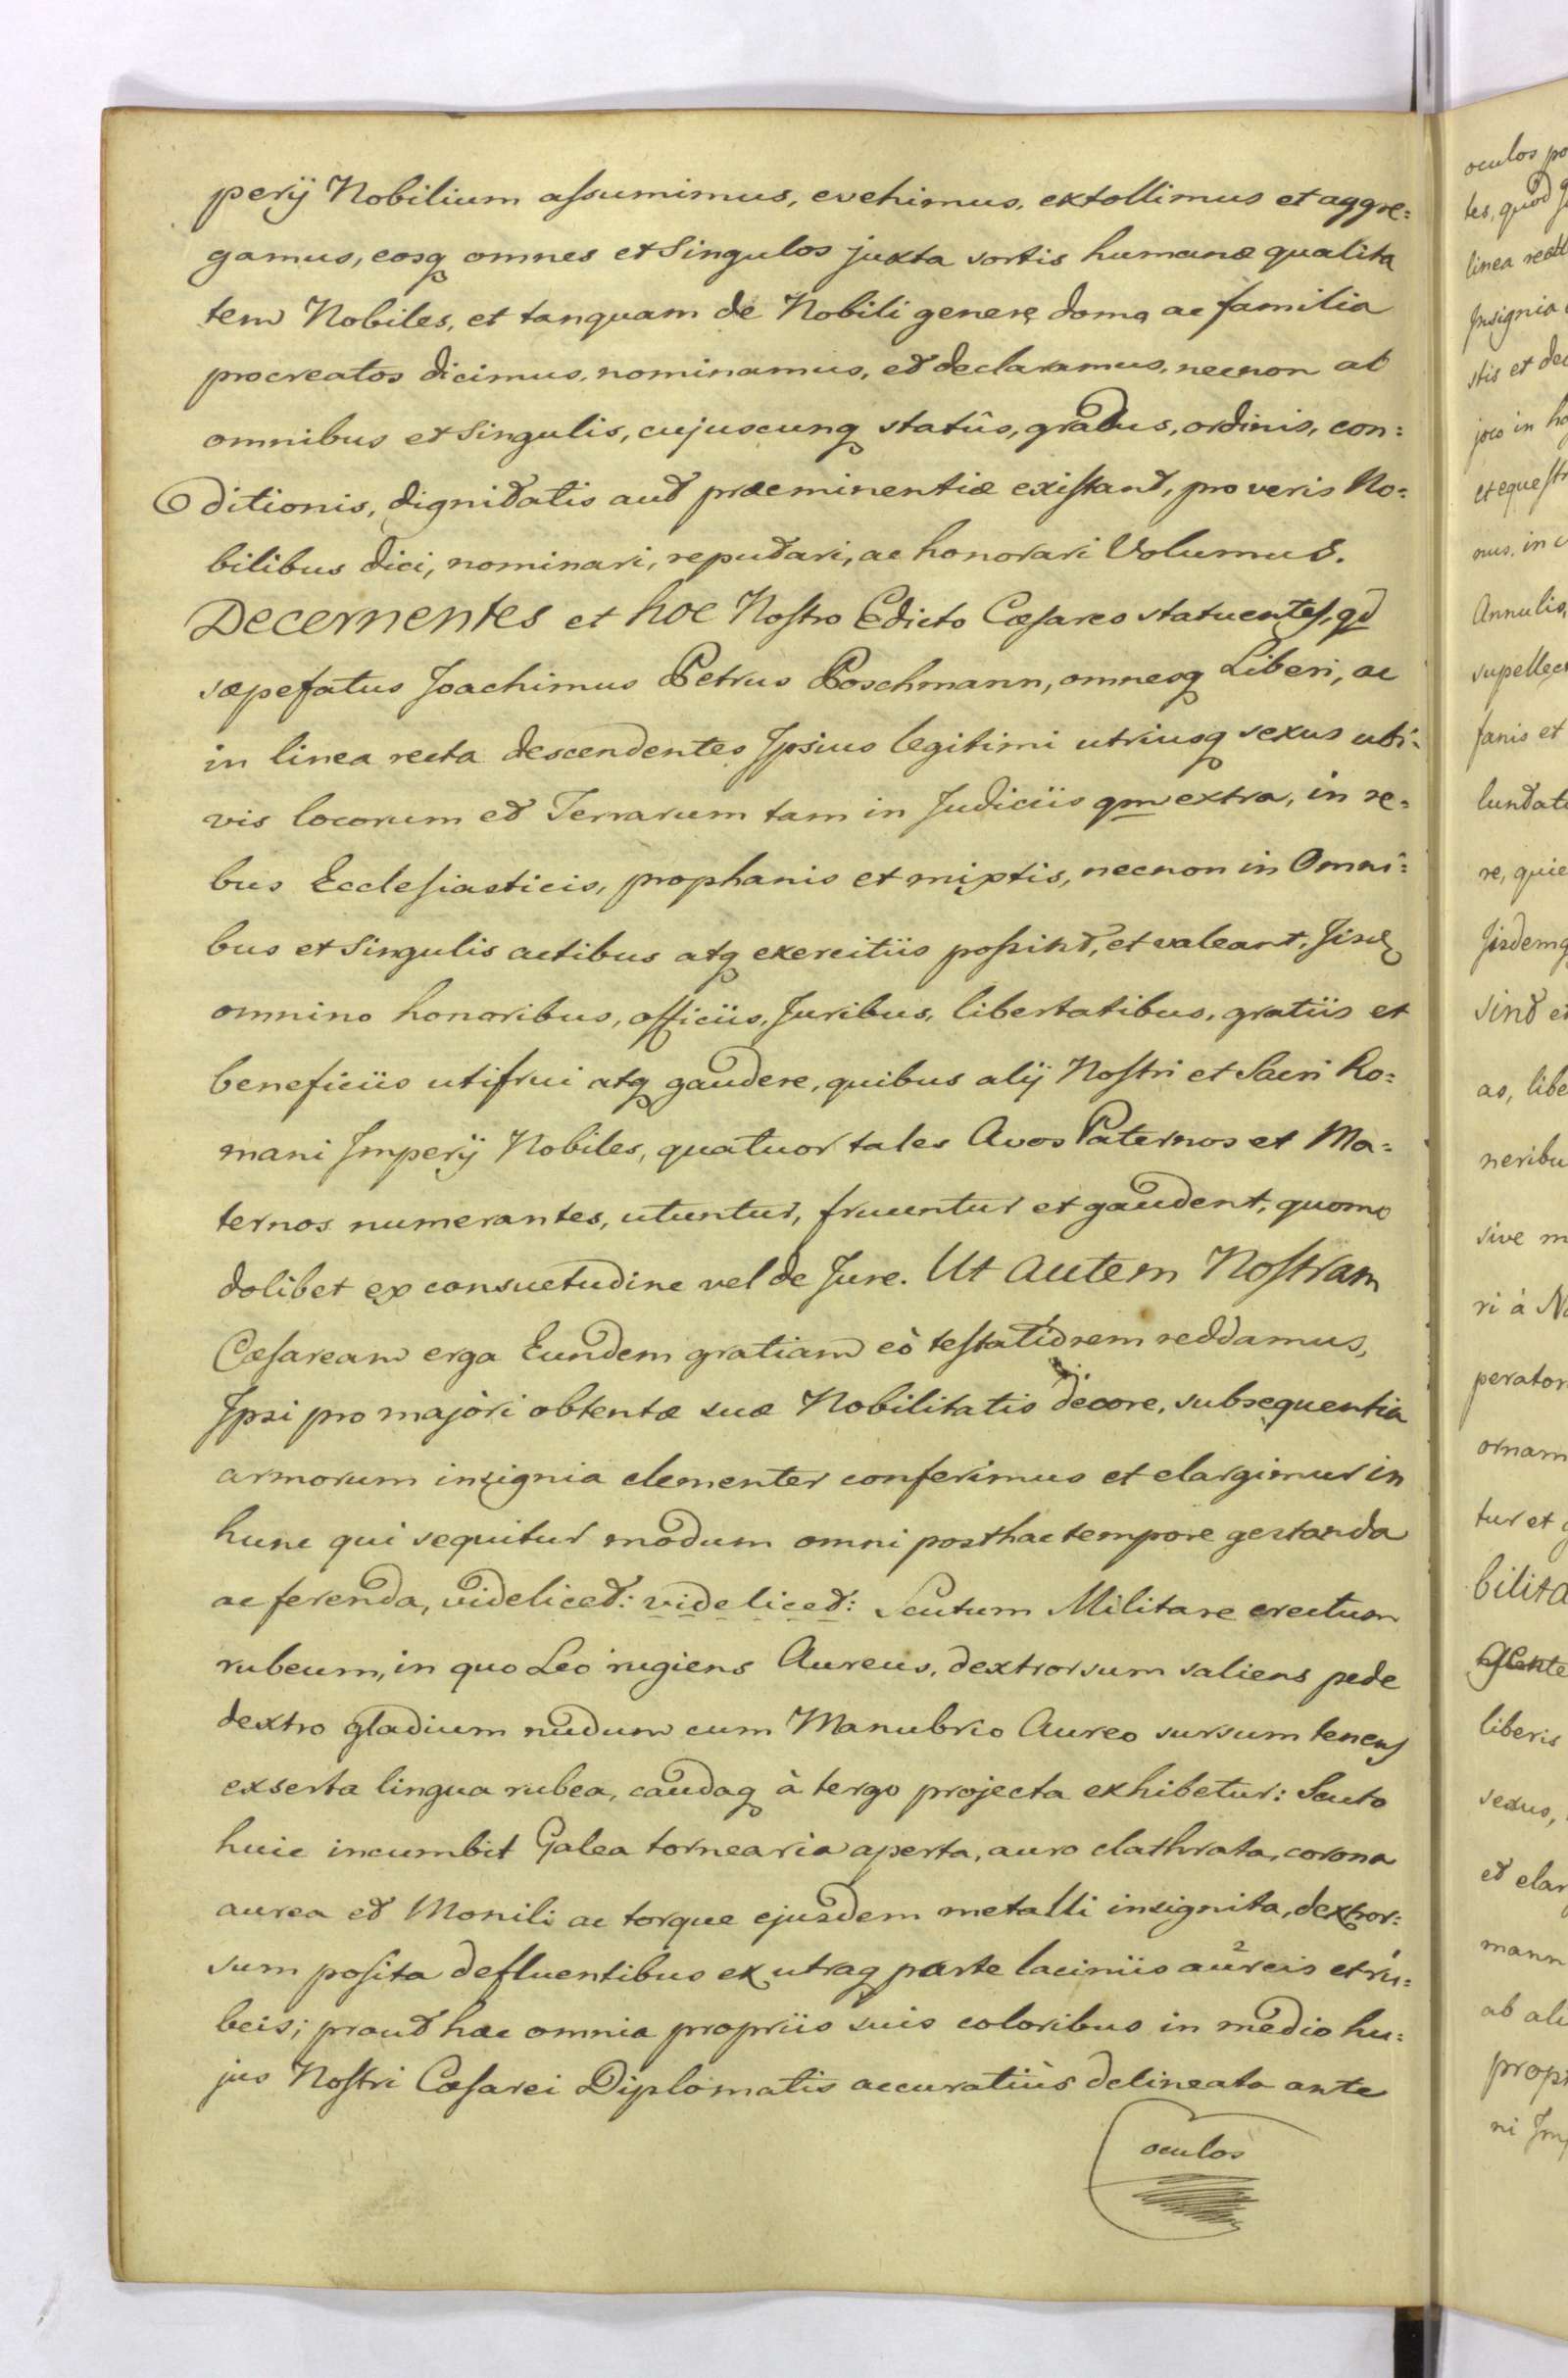 perij Nobilium aſsumimus, evehimus, extollimus et aggre=
gamus, eosq omnes et Singulos juxta sortis humanæ qualita
tem Nobiles, et tanquam de Nobili genere domo ac familia
procreatos dicimus, nominamus, et declaramus, necnon ab
omnibus et Singulis, cujuscunq statûs, gradus, ordinis, con=
ditionis, dignitatis aut præeminentiæ existant, pro veris No=
bilibus dici, nominari, reputari, ac honorari Volumus.
Decernentes et hoc Nostro Edicto Cæsareo statuentes, qd
sæpefatus Joachimus Petrus Poschmann, omnesq Liberi, ac
in linea recta descendentes Ipsius legitimi utriusq sexus ubi=
vis locorum et Terrarum tam in Judiciis qm extra, in re=
bus Ecclesiasticis, prophanis et mixtis, necnon in Omni=
bus et Singulis actibus atq exercitiis poſsint, et valeant, Iisq
omnino honoribus, officiis, Juribus, libertatibus, gratiis et
beneficiis utifrui atq gaudere, quibus alij Nostri et Sacri Ro=
mani Imperij Nobiles, quatuor tales Avos Paternos et Ma=
ternos numerantes, utuntur, fruuntur et gaudent, quomo
dolibet ex consuetudine vel de Jure. Ut Autem Nostram
Cæsaream erga Eundem gratiam eò testatiorem reddamus,
Ipsi pro majori obtentæ suæ Nobilitatis decore, subsequentia
armorum insignia clementer conferimus et elargimur in
hunc qui sequitur modum omni posthac tempore gestanda
ac ferenda, videlicet: videlicet: Scutum Militare erectum
rubeum, in quo Leo rugiens Aureus, dextrorsum saliens pede
dextro gladium nudum cum Manubrio Aureo sursum tenens
exserta lingua rubea, caudaq à tergo projecta exhibetur: Scuto
huic incumbit Galea tornearia aperta, auro clathrata, corona
aurea et Monili ac torque ejusdem metalli insignita, dextror=
sum posita defluentibus ex utraq parte laciniis aureis et ru=
beis; prout hæc omnia propriis suis coloribus in medio hu=
jus Nostri Cæsarei Diplomatis accuratiùs delineata ante
oculos
oculos
tes, quod
linea
Insignia
stis et
joco in
et equestr
nus, in
Annulis,
supellec
fanis et
lundat
re, quie
Iisdemq
sint et
as, libe
neribu
sive m
ri à No
perator
ornam
tur et
bilita
liberis
sexus,
et elar
mann
ab ali
propr
ni Imp